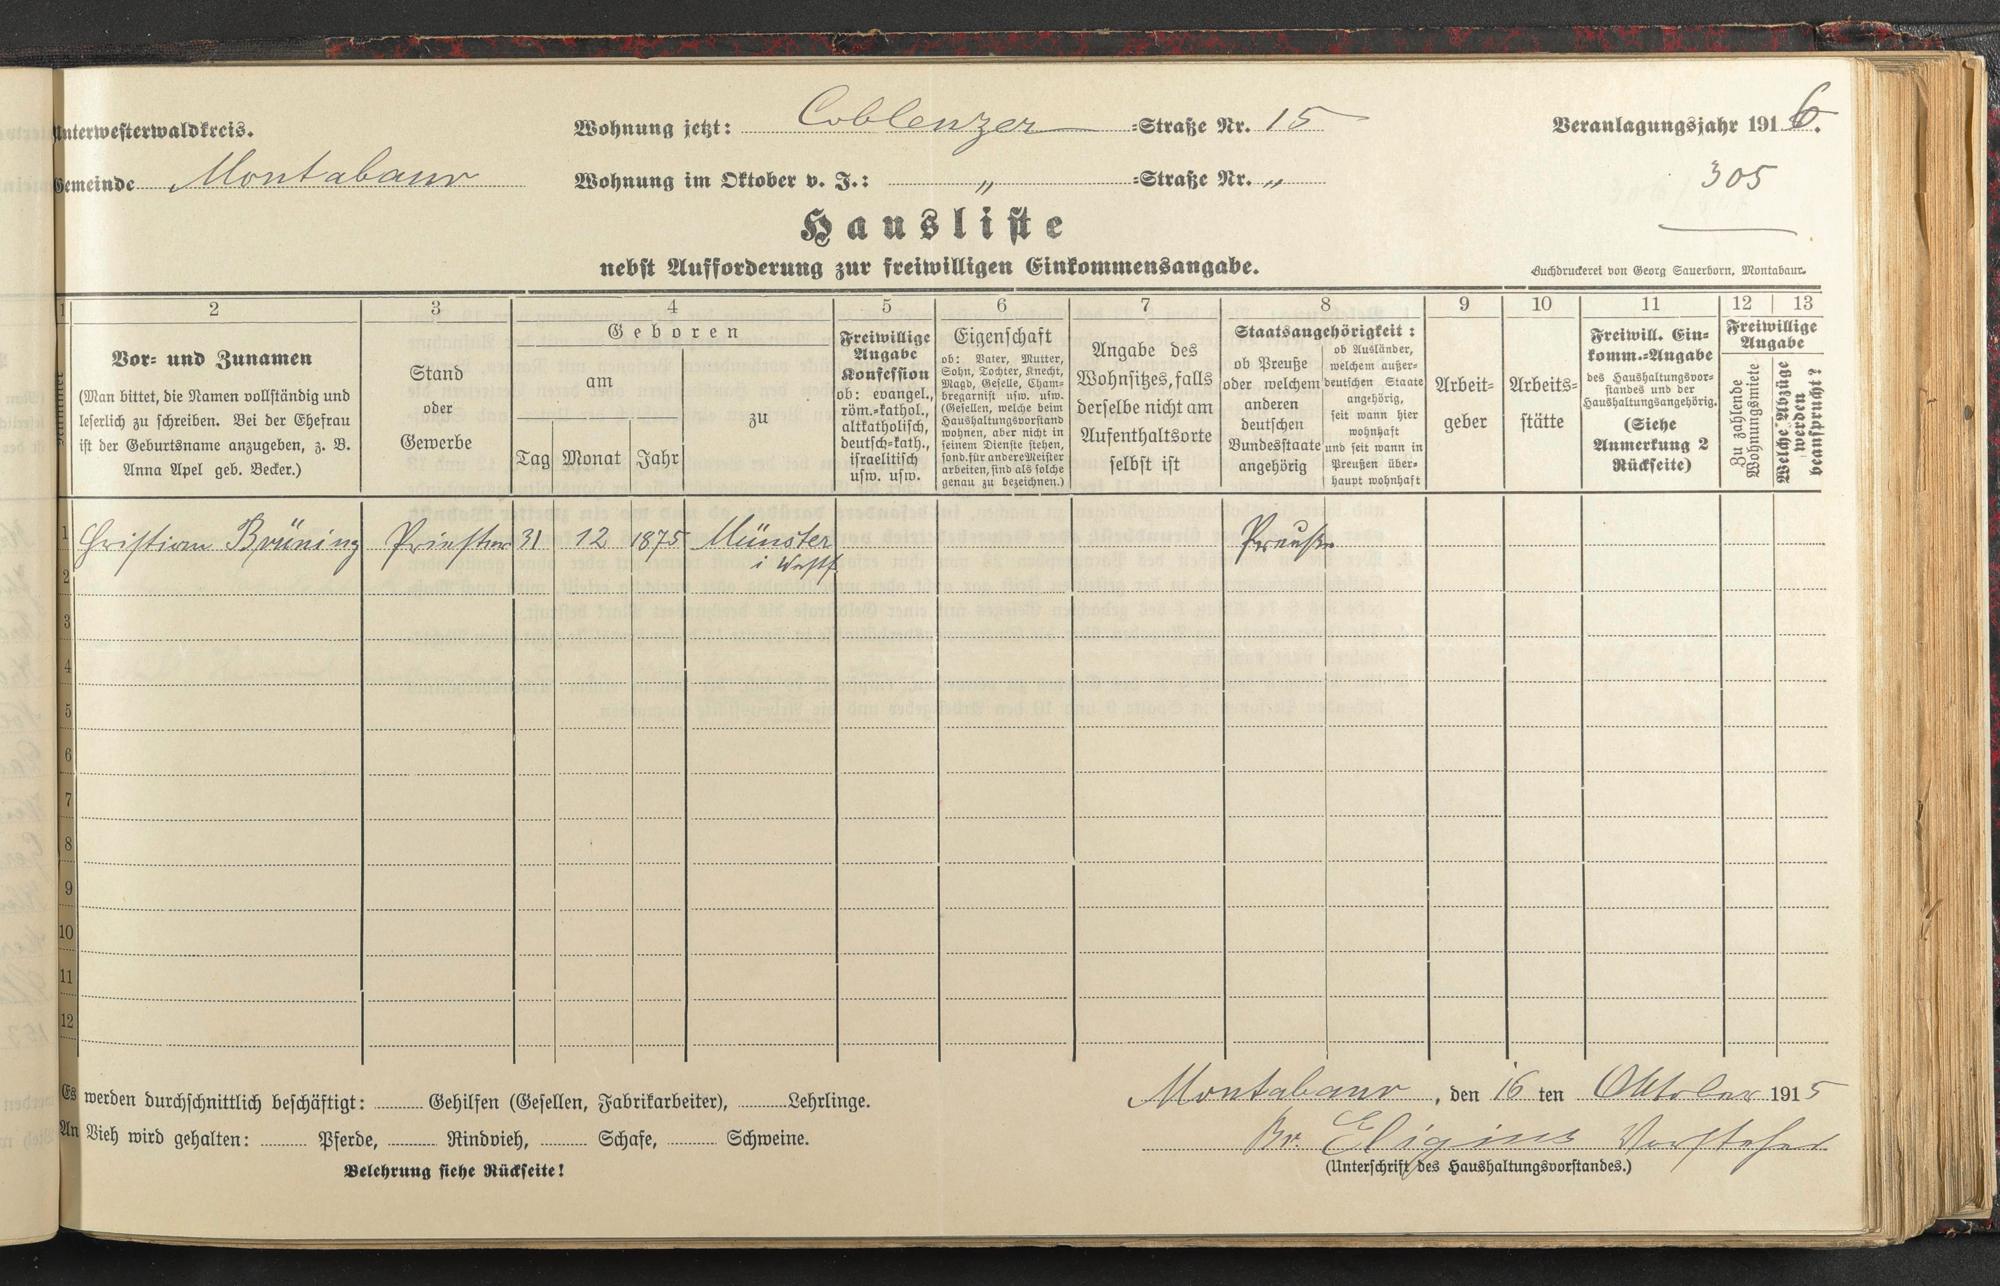 Unterwesterwaldkreis.
Wohnung jetzt: Coblenzer -Straße Nr. 15
Veranlagungsjahr 1916.
Gemeinde Montabaur
Wohnung im Oktober v. J.: " -Straße Nr. "
305
Hausliste
nebst Aufforderung zur freiwilligen Einkommensangabe.
Buchdruckerei von Georg Sauerborn, Montabaur.
1 2 3 4 5 6 7 8 9 10 11 12 13
Nummer
Vor- und Zunamen
(Man bittet, die Namen vollständig und
leserlich zu schreiben. Bei der Ehefrau
ist der Geburtsname anzugeben, z. B.
Anna Apel geb. Becker.)
Stand
oder
Gewerbe
Geboren
am
Tag Monat Jahr
zu
Freiwillige
Angabe
Konfession
ob: evangel.,
röm.-kathol.,
altkatholisch,
deutsch-kath.,
israelitisch
usw. usw.
Eigenschaft
ob: Vater, Mutter,
Sohn, Tochter, Knecht,
Magd, Geselle, Cham-
bregarnist usw. usw.
(Gesellen, welche beim
Haushaltungsvorstand
wohnen, aber nicht in
seinem Dienste stehen,
sond. für andere Meister
arbeiten, sind als solche
genau zu bezeichnen.)
Angabe des
Wohnsitzes, falls
derselbe nicht am
Aufenthaltsorte
selbst ist
Staatsangehörigkeit:
ob Preuße
oder welchem
anderen
deutschen
Bundesstaate
angehörig
ob Ausländer,
welchem außer-
deutschen Staate
angehörig,
seit wann hier
wohnhaft
und seit wann in
Preußen über-
haupt wohnhaft
Arbeit-
geber
Arbeits-
stätte
Freiwill. Ein-
komm.-Angabe
des Haushaltungsvor-
standes und der
Haushaltungsangehörig.
(Siehe
Anmerkung 2
Rückseite)
Freiwillige
Angabe
Zu zahlende
Wohnungsmiete
Welche Abzüge
werden
beansprucht?
1 Christian Brüning Priester 31 12 1875 Münster Preuße
i Westf
2
3
4
5
6
7
8
9
10
11
12
Es werden durchschnittlich beschäftigt: Gehilfen (Gesellen, Fabrikarbeiter), Lehrlinge.
Montabaur, den 16 ten Oktober 1915
An Vieh wird gehalten: Pferde, Rindvieh, Schafe, Schweine.
Br. Eligius Vorsteher
Belehrung siehe Rückseite!
(Unterschrift des Haushaltungsvorstandes.)